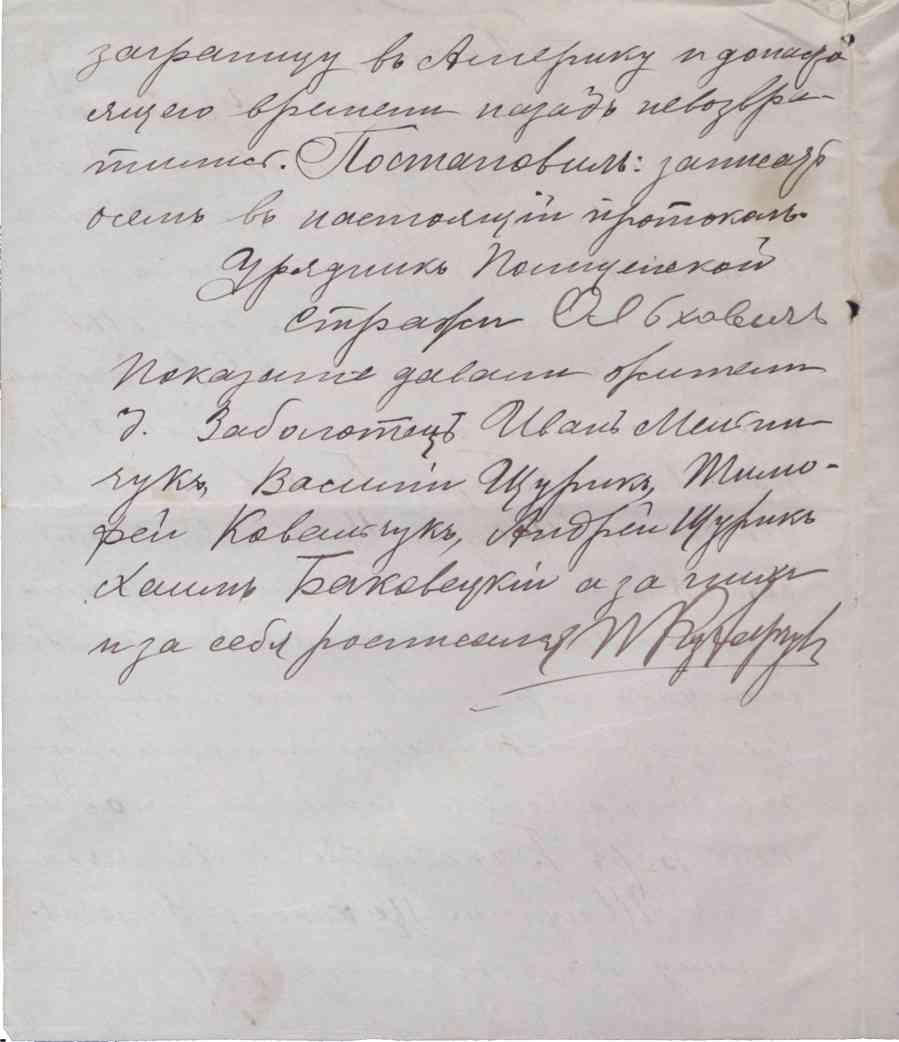 заграницу въ Америку и донасто
ящего времени назадъ невозвра-
тились. Постановилъ: записать
осемъ въ настоящій протоколъ.
Урядникъ Полицейской
стражи Ольховичъ
Показаніе давали жители
д. Заболотецъ Иванъ Мельни
чукъ, Василій Щурикъ, Тимо-
фей Ковальчукъ, Андрей Щурикъ
Хаимъ Баковецкій а за нихъ
и за себя росписался